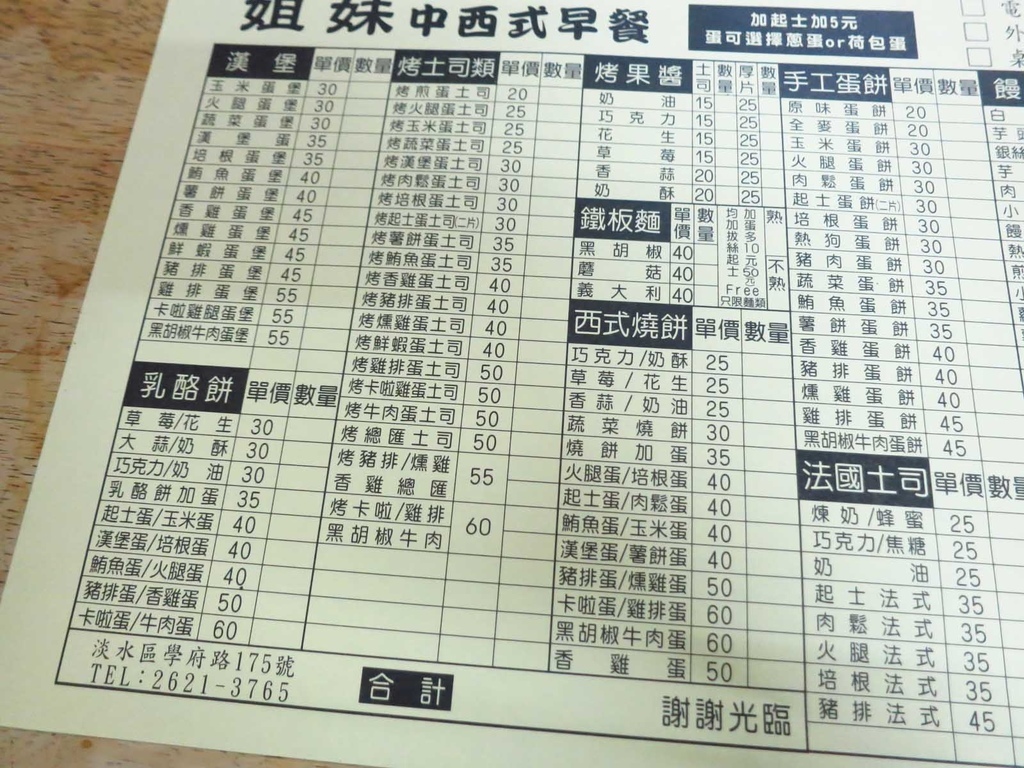 姐妹中西式早餐
加起士加5元
蛋可選擇蔥蛋or荷包蛋
電
外
漢堡 單價 數量
玉米蛋堡 30
火腿蛋堡 30
蔬菜蛋堡 30
漢堡蛋 35
培根蛋堡 35
鮪魚蛋堡 40
薯餅蛋堡 40
香雞蛋堡 45
燻雞蛋堡 45
鮮蝦蛋堡 45
豬排蛋堡 45
雞排蛋堡 55
卡啦雞腿蛋堡 55
黑胡椒牛肉蛋堡 55
乳酪餅 單價 數量
草莓/花生 30
大蒜/奶酥 30
巧克力/奶油 30
乳酪餅加蛋 35
起士蛋/玉米蛋 40
漢堡蛋/培根蛋 40
鮪魚蛋/火腿蛋 40
豬排蛋/香雞蛋 50
卡啦蛋/牛肉蛋 60
烤土司類 單價 數量
烤煎蛋土司 20
烤火腿蛋土司 25
烤玉米蛋土司 25
烤蔬菜蛋土司 25
烤漢堡蛋土司 30
烤肉鬆蛋土司 30
烤培根蛋土司 30
烤起士蛋土司(二片) 30
烤薯餅蛋土司 35
烤鮪魚蛋土司 35
烤香雞蛋土司 40
烤豬排蛋土司 40
烤燻雞蛋土司 40
烤鮮蝦蛋土司 40
烤雞排蛋土司 50
烤卡啦雞蛋土司 50
烤牛肉蛋土司 50
烤總匯土司 50
烤豬排/燻雞
香雞總匯 55
烤卡啦/雞排
黑胡椒牛肉 60
烤果醬 土司 數量 厚片 數量
奶油 15 25
巧克力 15 25
花生 15 25
草莓 15 25
香蒜 20 25
奶酥 20 25
鐵板麵 單價 數量
黑胡椒 40
蘑菇 40
義大利 40
均加蛋
加多10元
拔絲起士50元
Free
只限麵類
熟
不熟
西式燒餅 單價 數量
巧克力/奶酥 25
草莓/花生 25
香蒜/奶油 25
蔬菜燒餅 30
燒餅加蛋 35
火腿蛋/培根蛋 40
起士蛋/肉鬆蛋 40
鮪魚蛋/玉米蛋 40
漢堡蛋/薯餅蛋 40
豬排蛋/燻雞蛋 50
卡啦蛋/雞排蛋 60
黑胡椒牛肉蛋 60
香雞蛋 50
手工蛋餅 單價 數量
原味蛋餅 20
全麥蛋餅 20
玉米蛋餅 30
火腿蛋餅 30
肉鬆蛋餅 30
起士蛋餅(二片) 30
培根蛋餅 30
熱狗蛋餅 30
豬肉蛋餅 30
蔬菜蛋餅 35
鮪魚蛋餅 35
薯餅蛋餅 35
香雞蛋餅 40
豬排蛋餅 40
燻雞蛋餅 40
雞排蛋餅 45
黑胡椒牛肉蛋餅 45
法國土司 單價 數量
煉奶/蜂蜜 25
巧克力/焦糖 25
奶油 25
起士法式 35
肉鬆法式 35
火腿法式 35
培根法式 35
豬排法式 45
饅
白
芋頭
銀絲
芋
肉
小
饅
熱
煎
淡水區學府路175號
TEL:2621-3765
合計
謝謝光臨